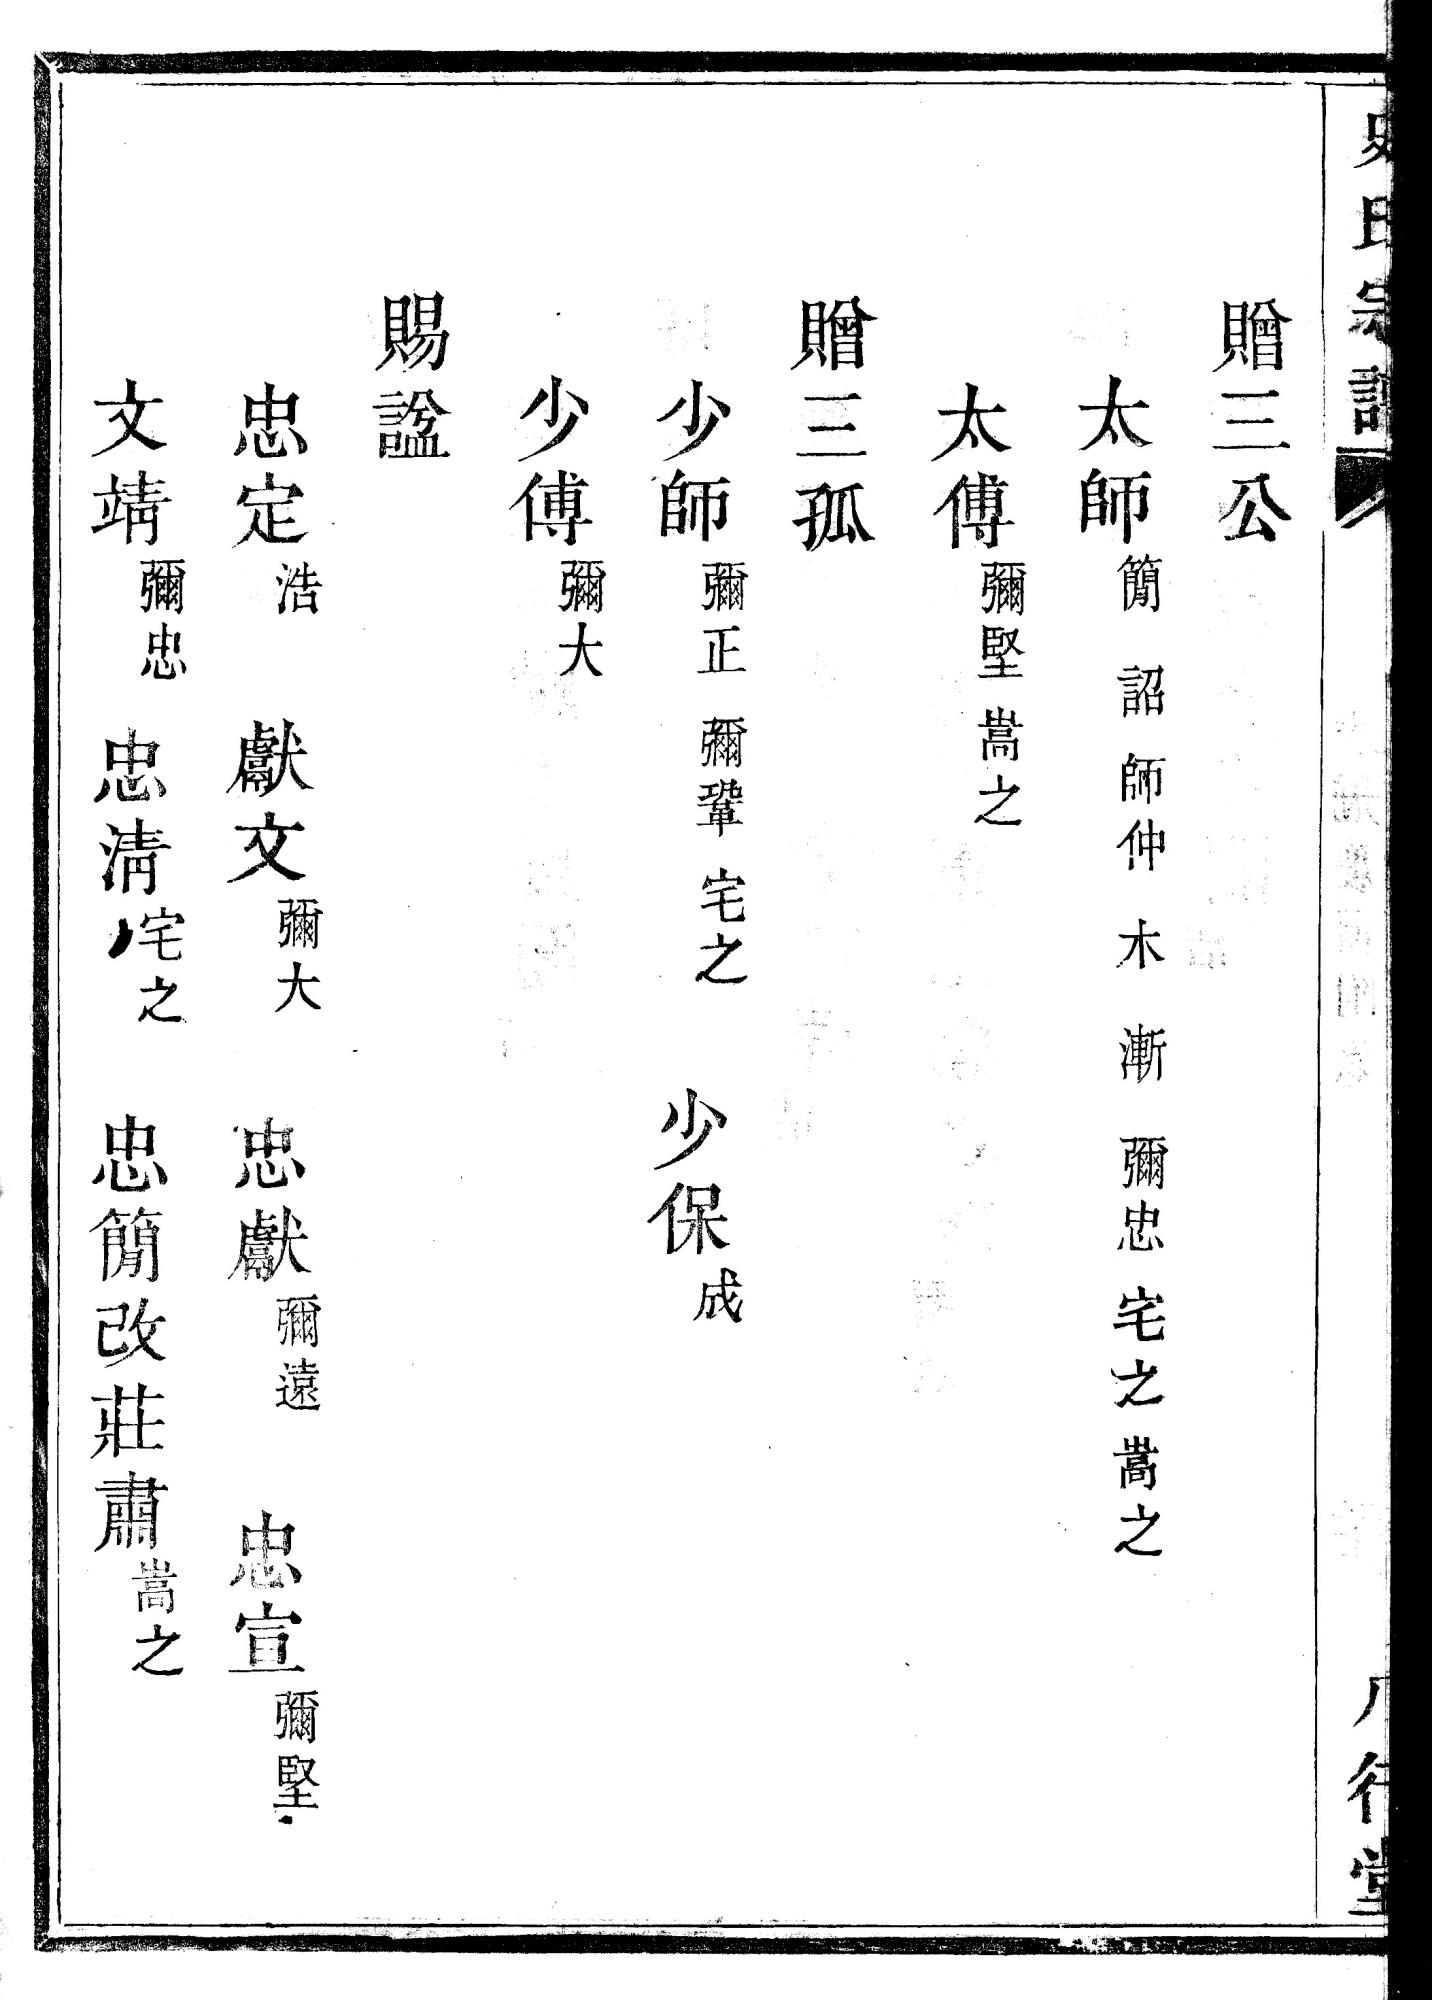 史氏宗譜
八行堂
贈三公
太師 簡 詔 師仲 木 漸 彌忠 宅之 嵩之
太傅 彌堅 嵩之
贈三孤
少師 彌正 彌鞏 宅之 少保 成
少傅 彌大
賜諡
忠定 浩 獻文 彌大 忠獻 彌遠 忠宣 彌堅
文靖 彌忠 忠清 宅之 忠簡改莊肅 嵩之